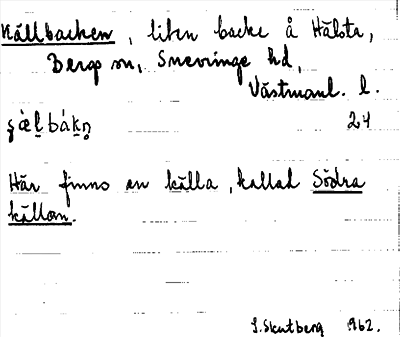 Källbacken, liten backe å Hälsta,
Bergs sn, Snevringe hd,
Västmanl. l.
24
Här finns en källa, kallad Södra
källan.
1962.